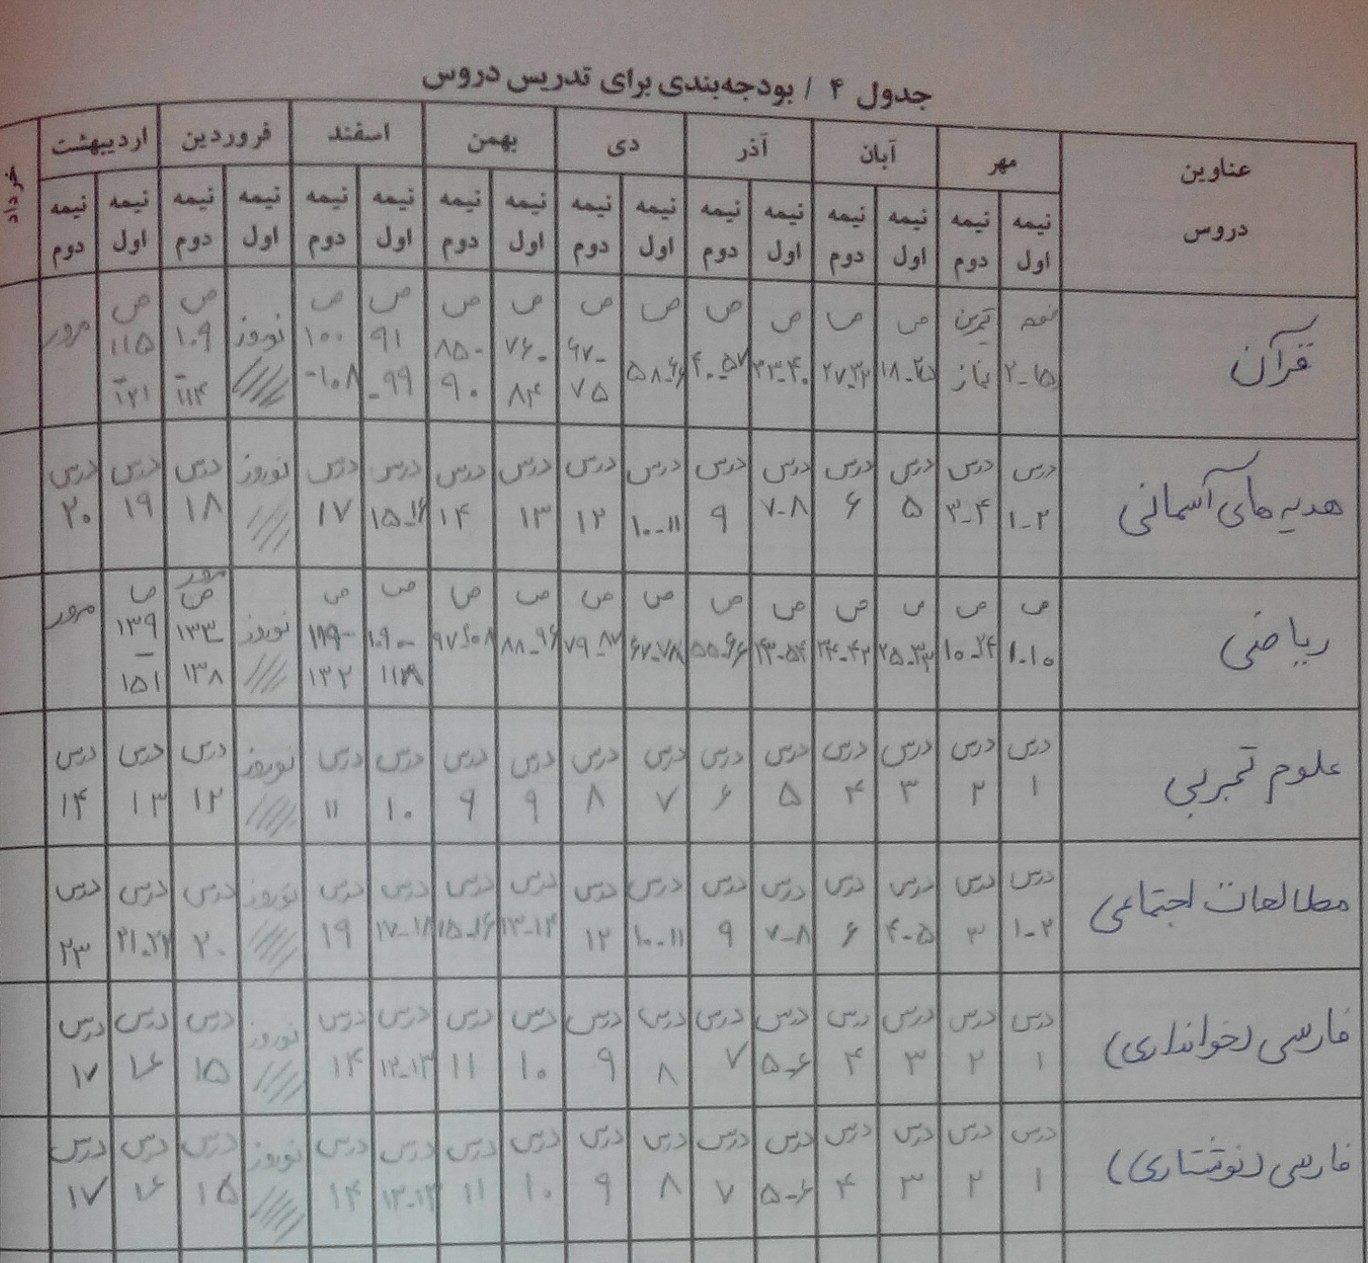 جدول ۴ / بودجه‌بندی برای تدریس دروس
عناوین دروس مهر آبان آذر دی بهمن اسفند فروردین اردیبهشت خرداد
نیمه اول نیمه دوم نیمه اول نیمه دوم نیمه اول نیمه دوم نیمه اول نیمه دوم نیمه اول نیمه دوم نیمه اول نیمه دوم نیمه اول نیمه دوم نیمه اول نیمه دوم
قرآن ۲-۱۵ تمرین نماز ص ۱۸-۲۵ ص ۲۷-۳۲ ص ۳۳-۴۰ ص ۴۰-۵۷ ص ۵۸-۶۶ ص ۶۷-۷۵ ص ۷۶-۸۴ ص ۸۵-۹۰ ص ۹۱-۹۹ ص ۱۰۰-۱۰۸ نوروز ص ۱۰۹-۱۱۴ ص ۱۱۵-۱۲۱ مرور
هدیه های آسمانی درس ۱-۲ درس ۳-۴ درس ۵ درس ۶ درس ۷-۸ درس ۹ درس ۱۰-۱۱ درس ۱۲ درس ۱۳ درس ۱۴ درس ۱۵-۱۶ درس ۱۷ نوروز درس ۱۸ درس ۱۹ درس ۲۰
ریاضی ص ۱-۱۰ ص ۱۰-۲۴ ص ۲۵-۳۳ ص ۳۴-۴۲ ص ۴۳-۵۴ ص ۵۵-۶۶ ص ۶۷-۷۸ ص ۷۹-۸۷ ص ۸۸-۹۶ ص ۹۷-۱۰۸ ص ۱۰۹-۱۱۸ ص ۱۱۹-۱۳۲ نوروز مرور ص ۱۳۳-۱۳۸ ص ۱۳۹-۱۵۱ مرور
علوم تجربی درس ۱ درس ۲ درس ۳ درس ۴ درس ۵ درس ۶ درس ۷ درس ۸ درس ۹ درس ۹ درس ۱۰ درس ۱۱ نوروز درس ۱۲ درس ۱۳ درس ۱۴
مطالعات اجتماعی درس ۱-۲ درس ۳ درس ۴-۵ درس ۶ درس ۷-۸ درس ۹ درس ۱۰-۱۱ درس ۱۲ درس ۱۳-۱۴ درس ۱۵-۱۶ درس ۱۷-۱۸ درس ۱۹ نوروز درس ۲۰ درس ۲۱-۲۲ درس ۲۳
فارسی (خوانداری) درس ۱ درس ۲ درس ۳ درس ۴ درس ۵-۶ درس ۷ درس ۸ درس ۹ درس ۱۰ درس ۱۱ درس ۱۲-۱۳ درس ۱۴ نوروز درس ۱۵ درس ۱۶ درس ۱۷
فارسی (نوشتاری) درس ۱ درس ۲ درس ۳ درس ۴ درس ۵-۶ درس ۷ درس ۸ درس ۹ درس ۱۰ درس ۱۱ درس ۱۲-۱۳ درس ۱۴ نوروز درس ۱۵ درس ۱۶ درس ۱۷